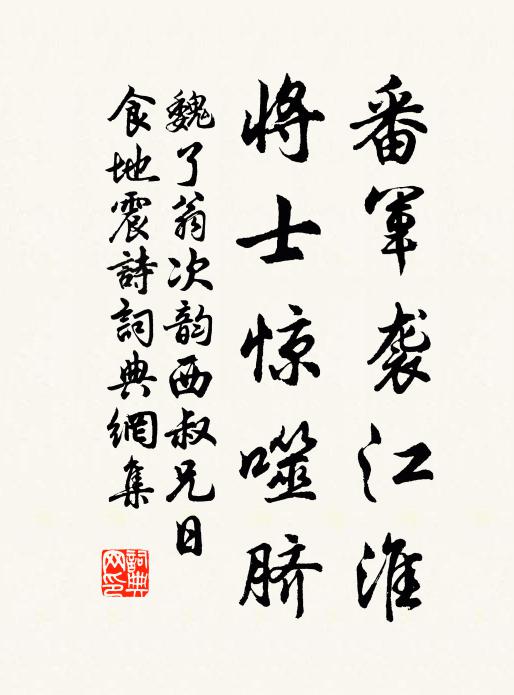 番军袭江淮
将士惊噬脐
魏了翁次韵西叔兄日
食地震詩詞典網集
詞典网印